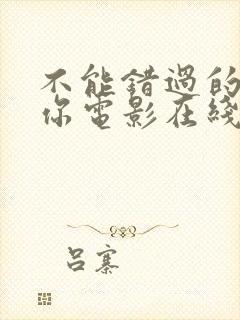 不能錯過的
你電影在綫
呂寨